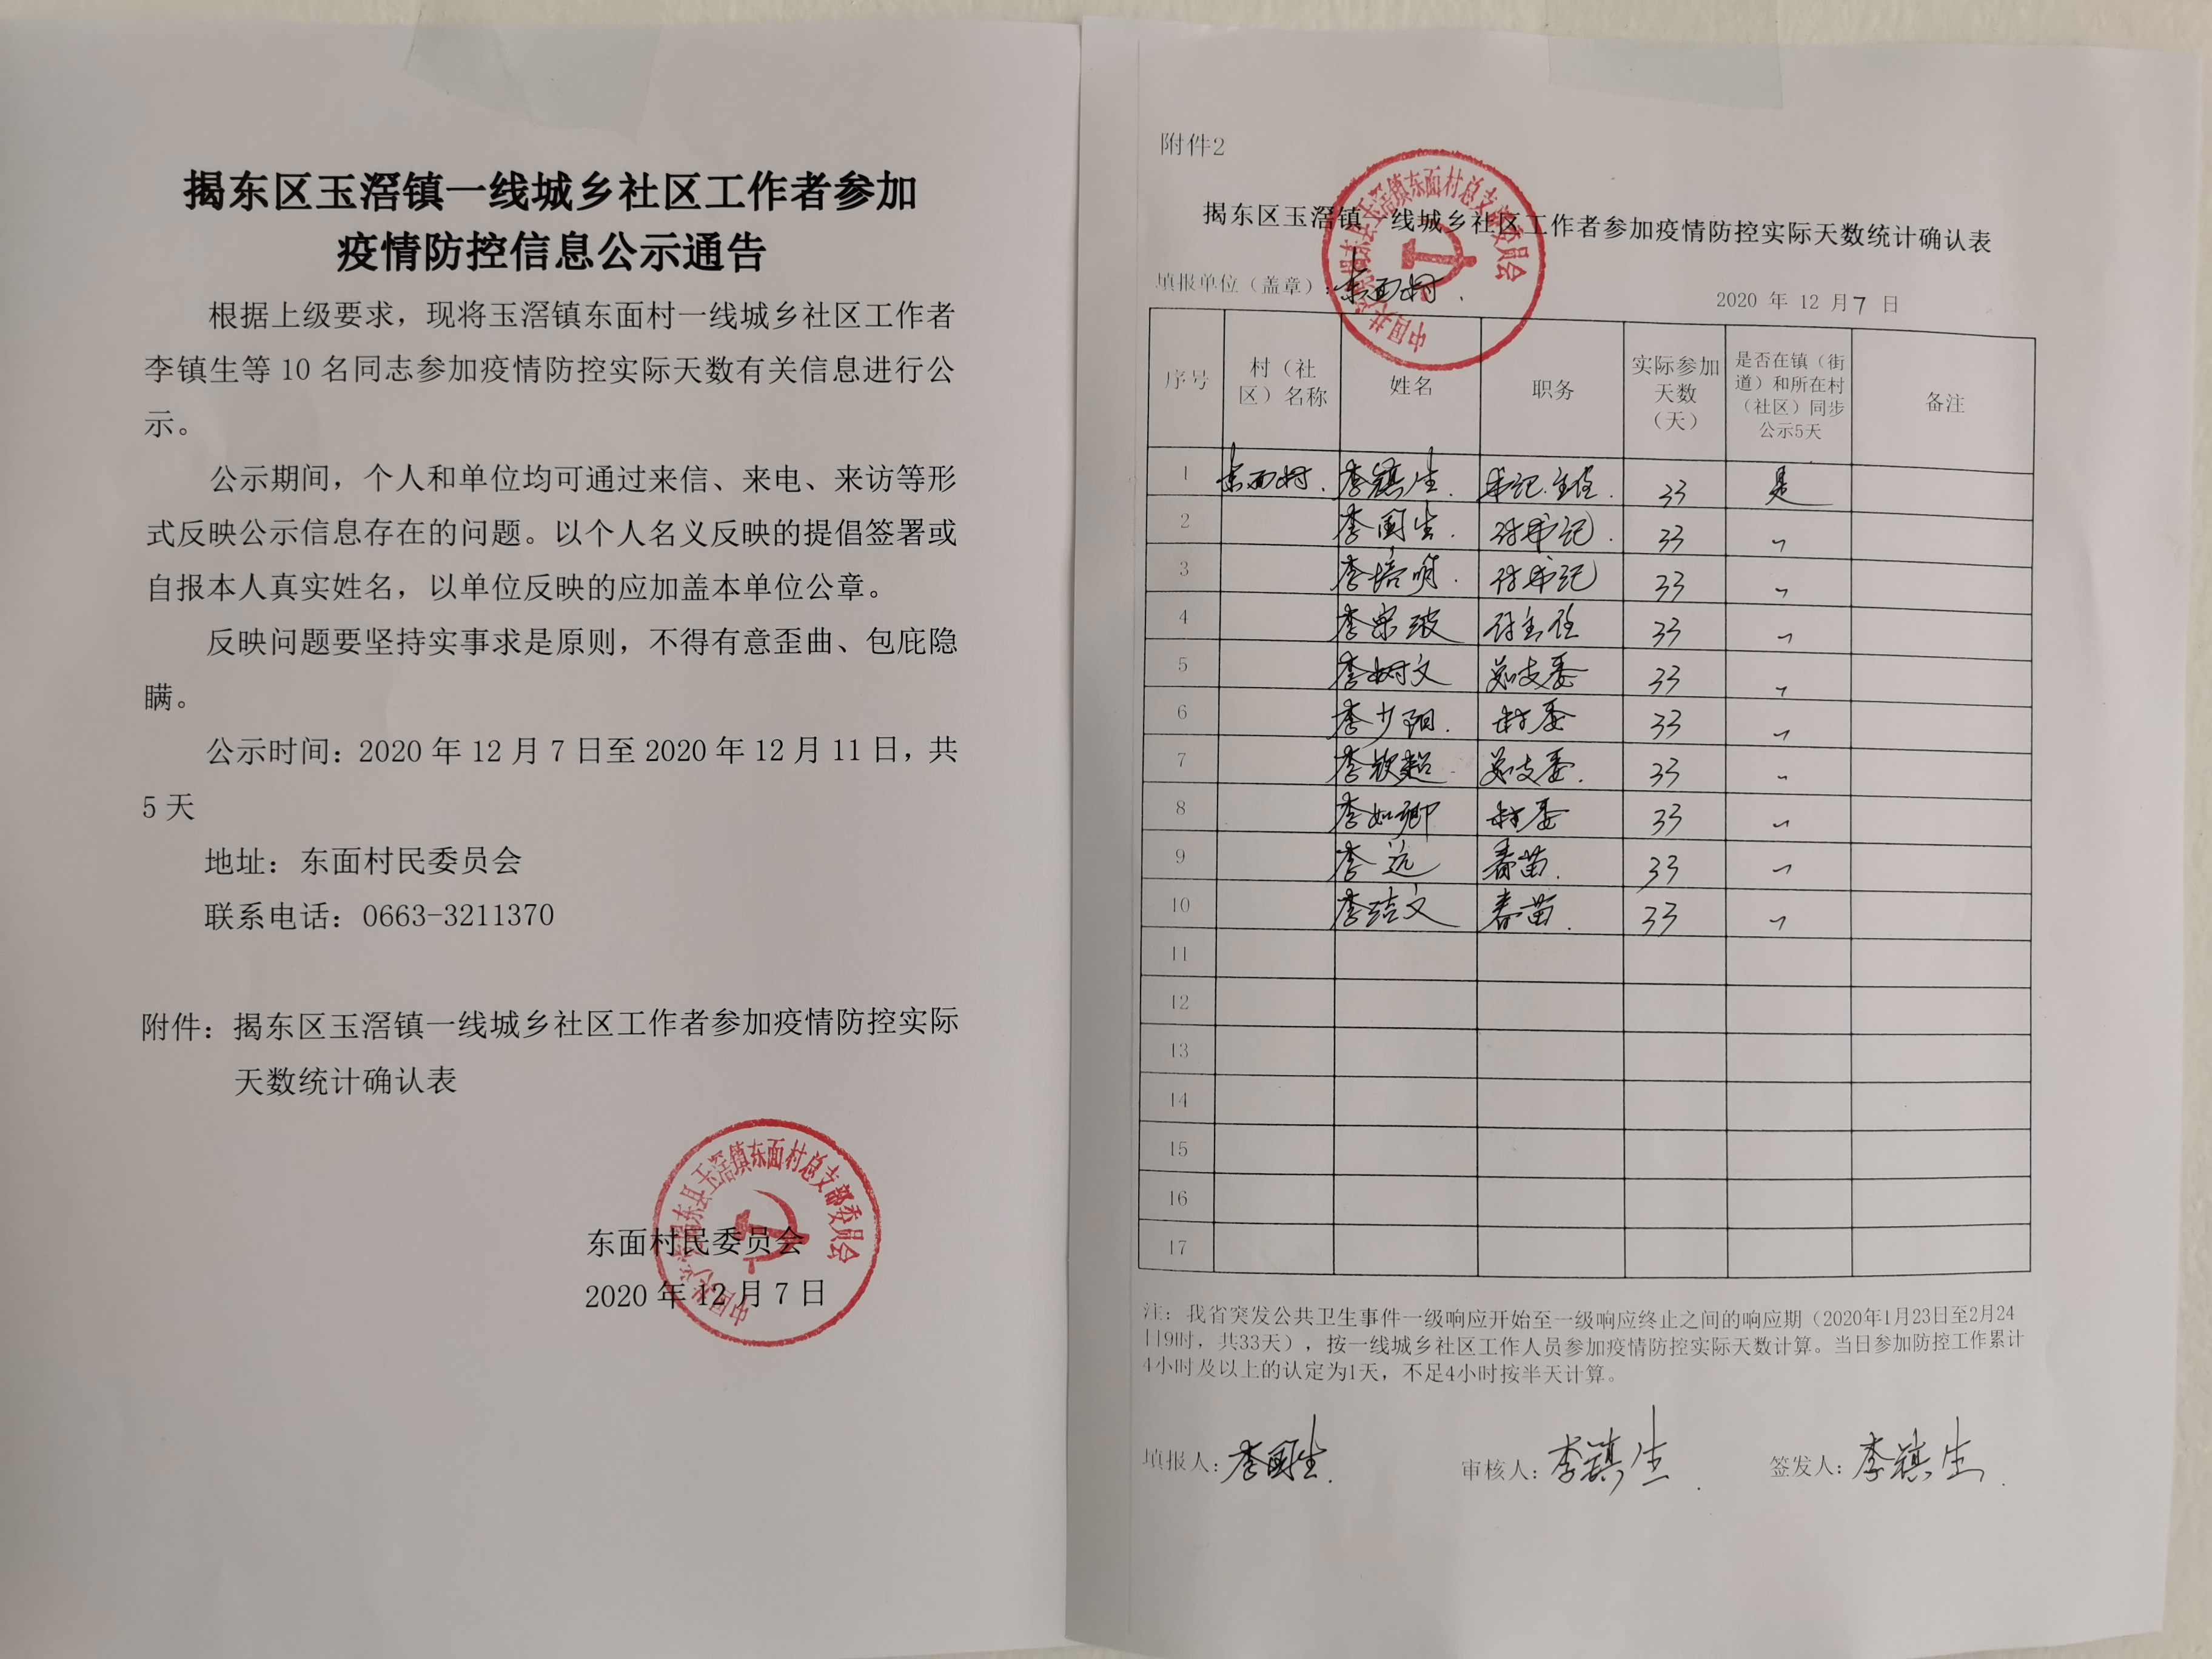 揭东区玉滘镇一线城乡社区工作者参加
疫情防控信息公示通告
根据上级要求，现将玉滘镇东面村一线城乡社区工作者
李镇生等10名同志参加疫情防控实际天数有关信息进行公
示。
公示期间，个人和单位均可通过来信、来电、来访等形
式反映公示信息存在的问题。以个人名义反映的提倡签署或
自报本人真实姓名，以单位反映的应加盖本单位公章。
反映问题要坚持实事求是原则，不得有意歪曲、包庇隐
瞒。
公示时间：2020年12月7日至2020年12月11日，共
5天
地址：东面村民委员会
联系电话：0663-3211370
附件：揭东区玉滘镇一线城乡社区工作者参加疫情防控实际
天数统计确认表
东面村民委员会
2020年12月7日
中国共产党揭东县玉滘镇东面村总支部委员会
附件2
揭东区玉滘镇一线城乡社区工作者参加疫情防控实际天数统计确认表
中国共产党揭东县玉滘镇东面村总支部委员会
填报单位（盖章）：东面村. 2020 年 12 月7 日
序号 村（社区）名称 姓名 职务 实际参加天数（天） 是否在镇（街道）和所在村（社区）同步公示5天 备注
1 东面村. 李镇生. 书记.主任. 33 是
2 李国生. 付书记. 33 〃
3 李培明. 付书记 33 〃
4 李 付主任 33 〃
5 李树文 总支委 33 〃
6 李少阳. 村委 33 〃
7 李钦超. 总支委. 33 〃
8 李如卿 村委 33 〃
9 李远 春苗. 33 〃
10 李 文 春苗. 33 〃
11
12
13
14
15
16
17
注：我省突发公共卫生事件一级响应开始至一级响应终止之间的响应期（2020年1月23日至2月24
日9时，共33天），按一线城乡社区工作人员参加疫情防控实际天数计算。当日参加防控工作累计
4小时及以上的认定为1天，不足4小时按半天计算。
填报人：李国生. 审核人：李镇生. 签发人：李镇生.